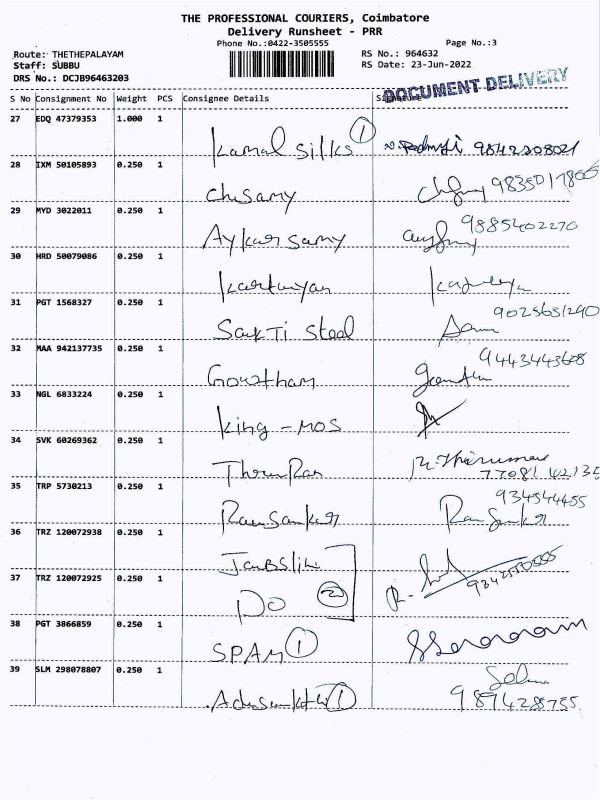 THE PROFESSIONAL COURIERS, Coimbatore
Delivery Runsheet - PRR
Phone No.:0422-3505555
Page No.:3
Route: THETHEPALAYAM
RS No.: 964632
Staff: SUBBU
RS Date: 23-Jun-2022
DRS No.: DCJB96463203
DOCUMENT DELIVERY
S No Consignment No Weight PCS Consignee Details
27 EDQ 47379353 1.000 1
Kamal silks 1 9842208021
28 IXM 50105893 0.250 1
Chisamy
29 MYD 3022011 0.250 1
9885402270
Aykar samy
30 HRD 50079086 0.250 1
31 PGT 1568327 0.250 1
Sakti Steel
32 MAA 942137735 0.250 1
Gowtham
33 NGL 6833224 0.250 1
King - MOS
34 SVK 60269362 0.250 1
77081 42135
35 TRP 5730213 0.250 1
934544455
Ramsankar Ram Sankar
36 TRZ 120072938 0.250 1
37 TRZ 120072925 0.250 1
DO 2
38 PGT 3866859 0.250 1
SPAM 1
39 SLM 298078807 0.250 1
9894288755